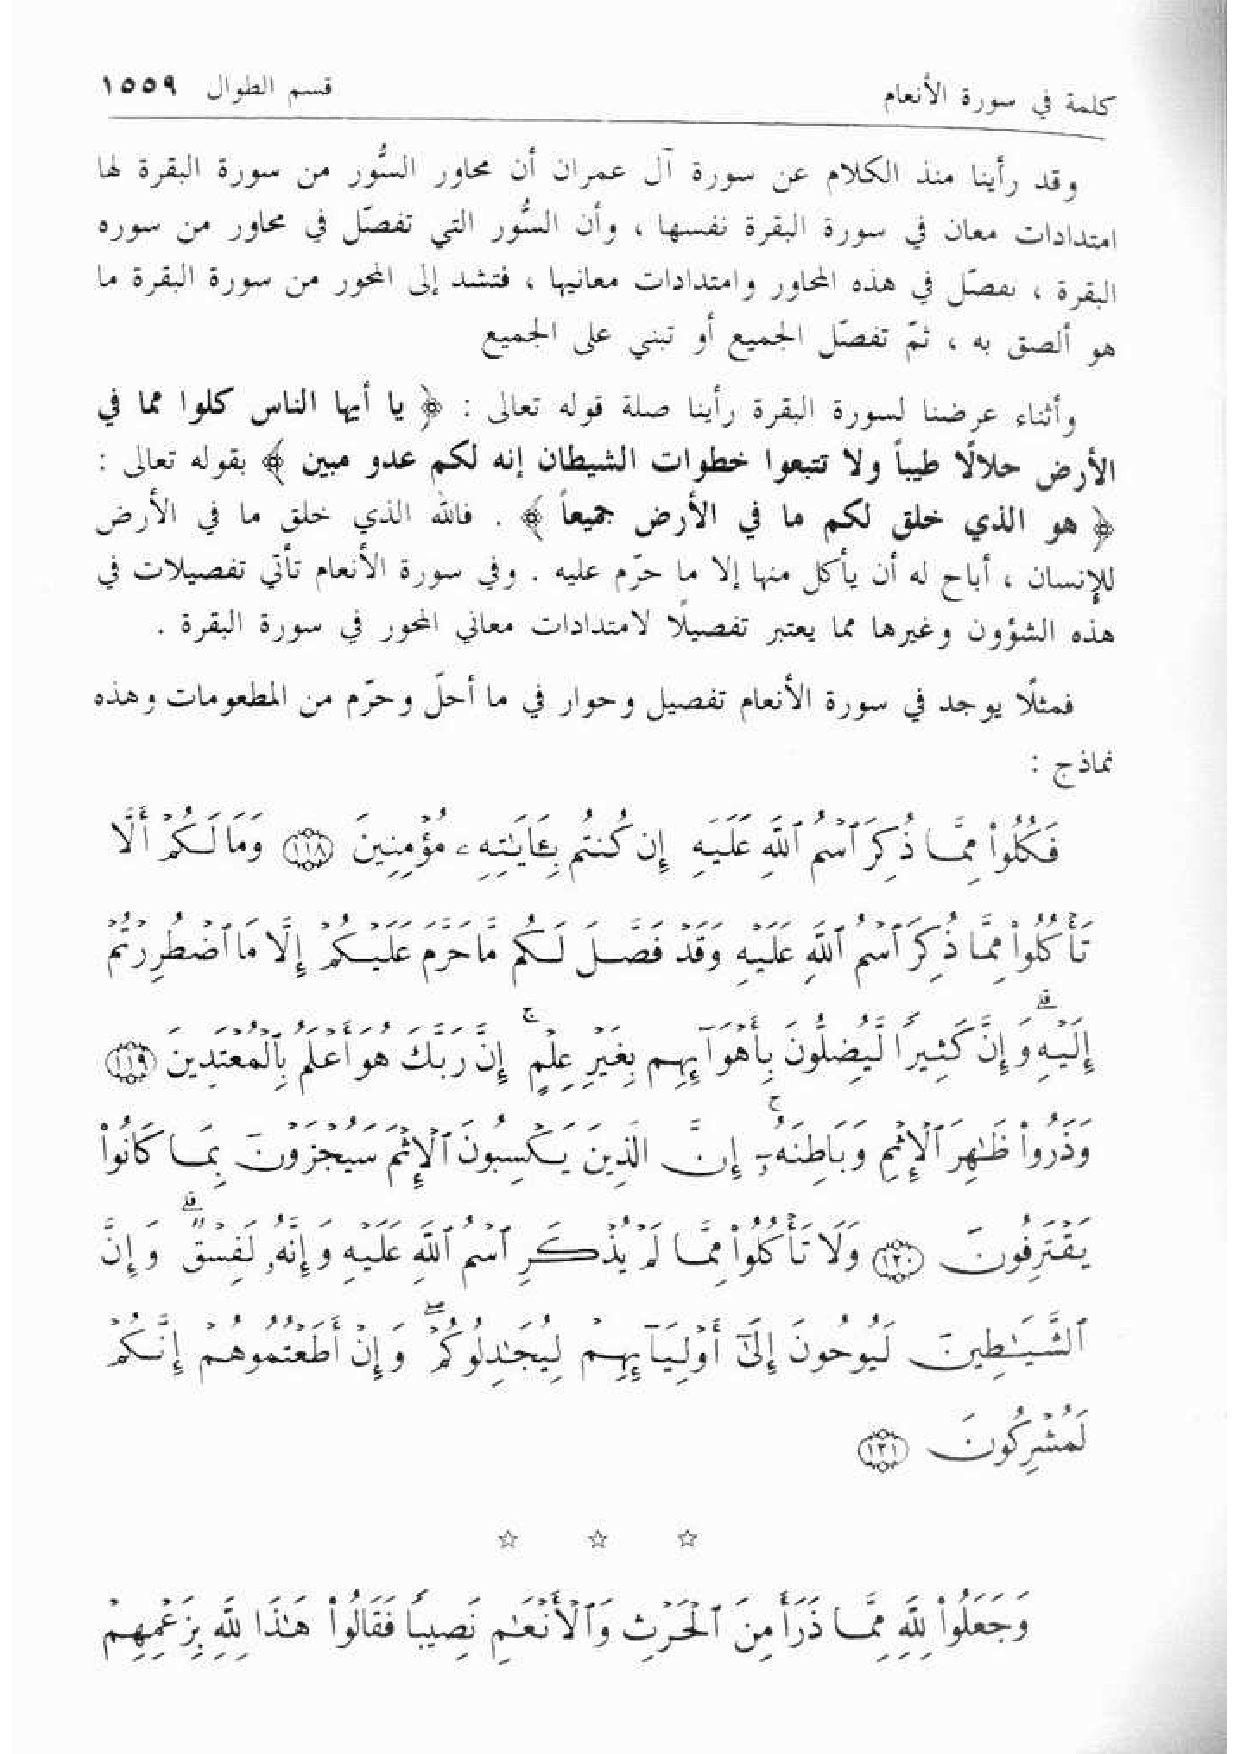 كلمة في سورة الأنعام قسم الطوال ١٥٥٩
وقد رأينا منذ الكلام عن سورة آل عمران أن محاور السُّور من سورة البقرة لها
امتدادات معان في سورة البقرة نفسها ، وأن السُّور التي تفصّل في محاور من سوره
البقرة ، تفصّل في هذه المحاور وامتدادات معانيها ، فتشد إلى المحور من سورة البقرة ما
هو ألصق به ، ثمّ تفصّل الجميع أو تبني على الجميع
وأثناء عرضنا لسورة البقرة رأينا صلة قوله تعالى : ﴿ يا أيها الناس كلوا مما في
الأرض حلالًا طيباً ولا تتبعوا خطوات الشيطان إنه لكم عدو مبين ﴾ بقوله تعالى :
﴿ هو الذي خلق لكم ما في الأرض جميعاً ﴾ . فالله الذي خلق ما في الأرض
للإنسان ، أباح له أن يأكل منها إلا ما حرّم عليه . وفي سورة الأنعام تأتي تفصيلات في
هذه الشؤون وغيرها مما يعتبر تفصيلًا لامتدادات معاني المحور في سورة البقرة .
فمثلًا يوجد في سورة الأنعام تفصيل وحوار في ما أحلّ وحرّم من المطعومات وهذه
نماذج :
فَكُلُوا۟ مِمَّا ذُكِرَ ٱسْمُ ٱللَّهِ عَلَيْهِ إِن كُنتُم بِـَٔايَـٰتِهِۦ مُؤْمِنِينَ ﴿١١٨﴾ وَمَا لَكُمْ أَلَّا
تَأْكُلُوا۟ مِمَّا ذُكِرَ ٱسْمُ ٱللَّهِ عَلَيْهِ وَقَدْ فَصَّلَ لَكُم مَّا حَرَّمَ عَلَيْكُمْ إِلَّا مَا ٱضْطُرِرْتُمْ
إِلَيْهِ ۗ وَإِنَّ كَثِيرًا لَّيُضِلُّونَ بِأَهْوَآئِهِم بِغَيْرِ عِلْمٍ ۚ إِنَّ رَبَّكَ هُوَ أَعْلَمُ بِٱلْمُعْتَدِينَ ﴿١١٩﴾
وَذَرُوا۟ ظَـٰهِرَ ٱلْإِثْمِ وَبَاطِنَهُۥٓ ۚ إِنَّ ٱلَّذِينَ يَكْسِبُونَ ٱلْإِثْمَ سَيُجْزَوْنَ بِمَا كَانُوا۟
يَقْتَرِفُونَ ﴿١٢٠﴾ وَلَا تَأْكُلُوا۟ مِمَّا لَمْ يُذْكَرِ ٱسْمُ ٱللَّهِ عَلَيْهِ وَإِنَّهُۥ لَفِسْقٌ ۗ وَإِنَّ
ٱلشَّيَـٰطِينَ لَيُوحُونَ إِلَىٰٓ أَوْلِيَآئِهِمْ لِيُجَـٰدِلُوكُمْ ۖ وَإِنْ أَطَعْتُمُوهُمْ إِنَّكُمْ
لَمُشْرِكُونَ ﴿١٢١﴾
☆ ☆ ☆
وَجَعَلُوا۟ لِلَّهِ مِمَّا ذَرَأَ مِنَ ٱلْحَرْثِ وَٱلْأَنْعَـٰمِ نَصِيبًا فَقَالُوا۟ هَـٰذَا لِلَّهِ بِزَعْمِهِمْ